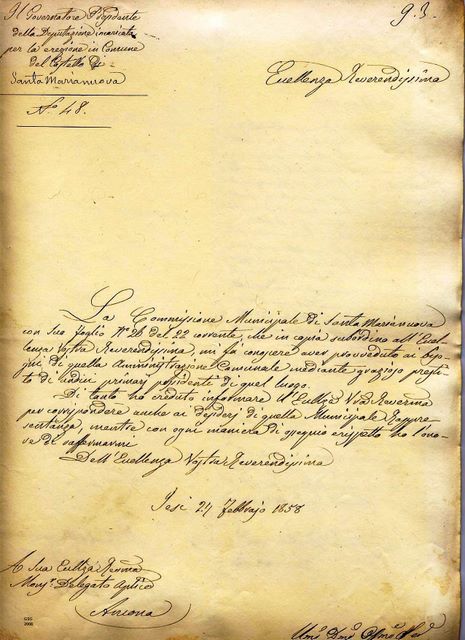 Il Governatore Presidente
della Deputazione incaricata
per la erezione in Comune
del Castello di
Santa Marianuova
N.° 48.
93.
Eccellenza Reverendissima
La Commissione Municipale di Santa Marianuova
con suo foglio N° 26 del 22 corrente, che in copia subordino all'Eccel-
lenza Vostra Reverendissima, mi fa conoscere aver provveduto ai biso-
gni di quella Amministrazione Comunale mediante grazioso presti-
to di undici primarj possidenti di quel luogo.
Di tanto ho creduto informare l'Ecc̃lza V̄r̄a Rev̄erm̄a
per corrispondere anche ai desiderj di quella Municipale Rappre-
sentanza, mentre con ogni maniera di ossequio e rispetto ho l'ono-
re di raffermarmi
Dell'Eccellenza Vostra Reverendissima
Jesi 24 Febbrajo 1858
A Sua Ecc̃lza Rev̄m̄a
Monsr. Delegato Apl̄ico
Ancona
GSS
2008